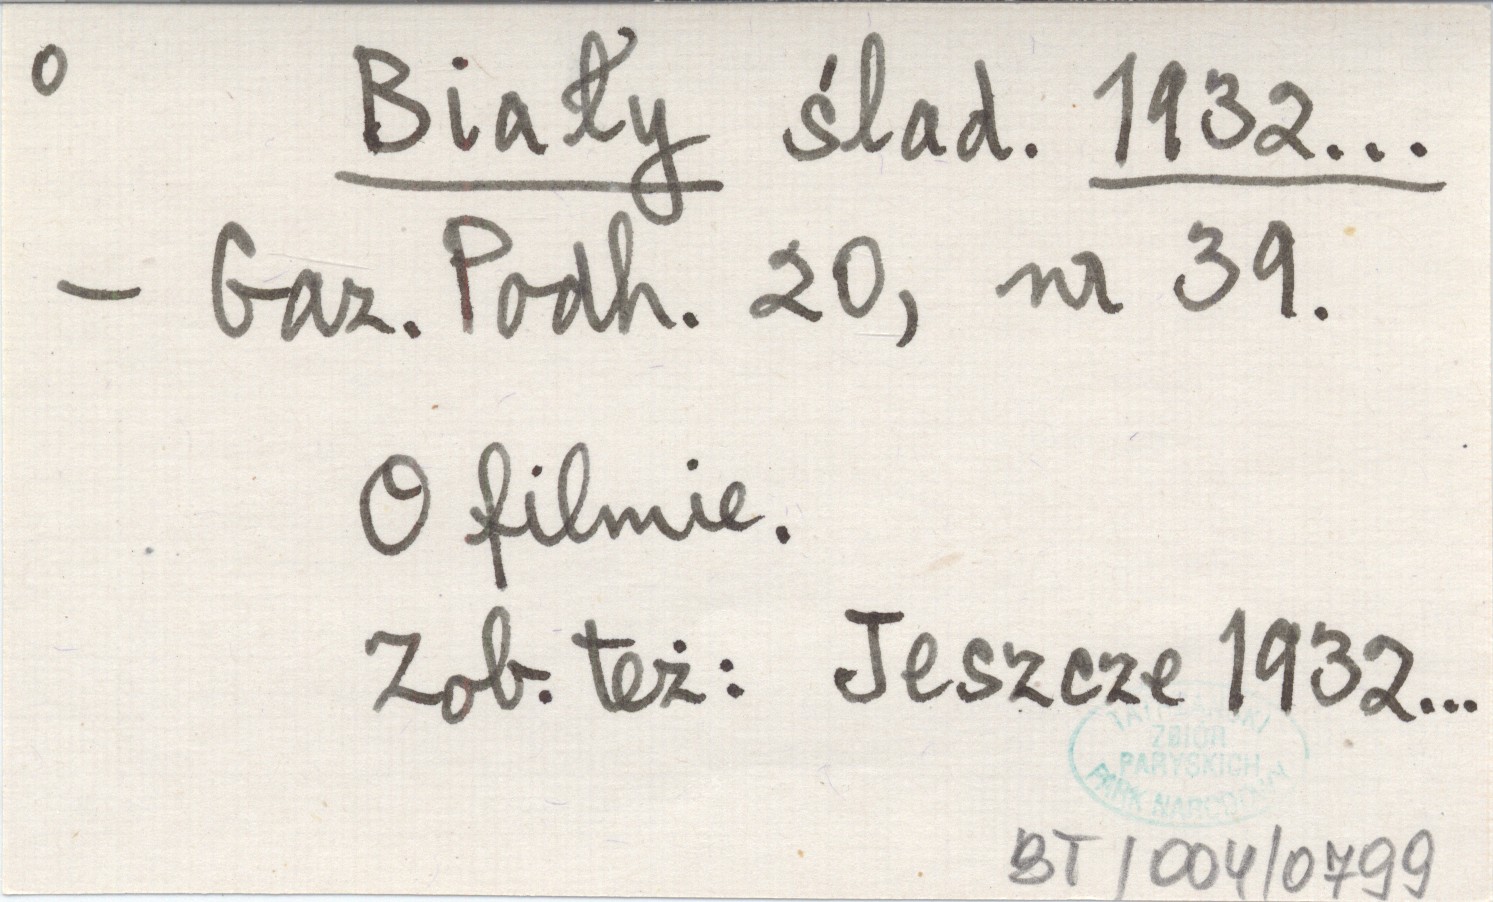 o Biały ślad. 1932...
- Gaz. Podh. 20, nr 39.
O filmie.
Zob. też: Jeszcze 1932...
TATRZAŃSKI
ZBIÓR
PARYSKICH
PARK NARODOWY
BT/004/0799